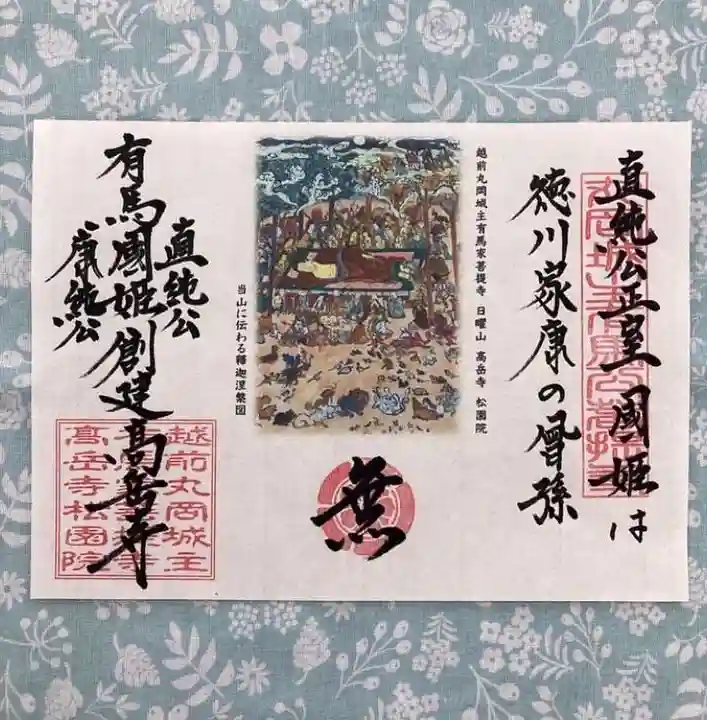 直純公正室國姫は
徳川家康の曾孫
越前丸岡城主有馬家菩提寺　日曜山　高岳寺　松園院
当山に伝わる釋迦涅槃図
無
直純公
有馬國姫創建高岳寺
康純公
越前丸岡城主
高岳寺松園院